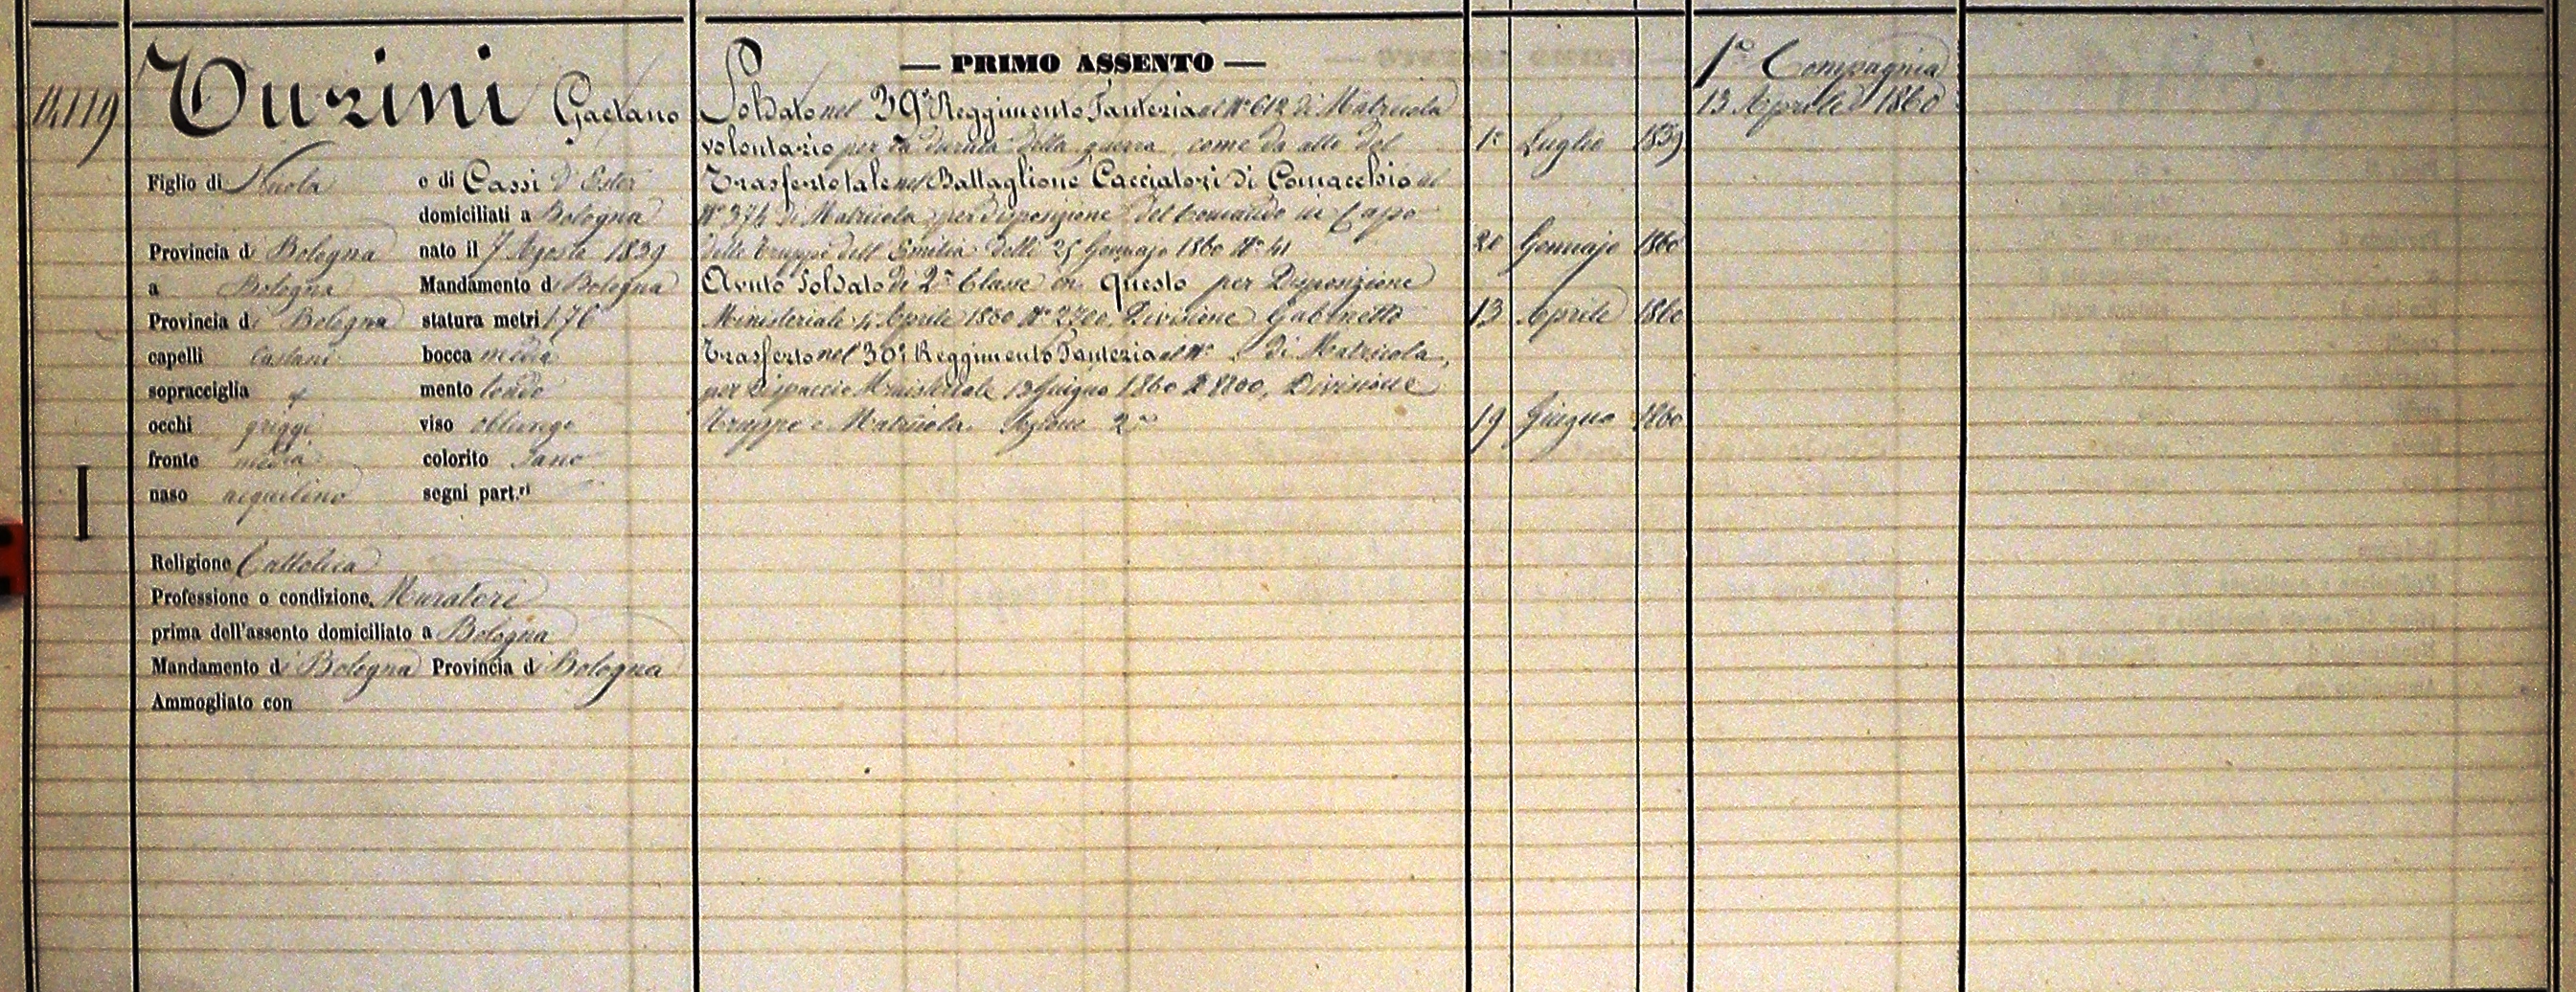 14119
Turini Gaetano
Figlio di Nicola e di Cassi D' Ester
domiciliati a Bologna
Provincia di Bologna nato il 7 Agosto 1839
a Bologna Mandamento di Bologna
Provincia di Bologna statura metri 1.76
capelli Castani bocca media
sopracciglia mento tondo
occhi griggi viso oblungo
fronte media colorito Sano
naso acquilino segni part.ri
I
Religione Cattolica
Professione o condizione Muratore
prima dell'assento domiciliato a Bologna
Mandamento di Bologna Provincia di Bologna
Ammogliato con
— PRIMO ASSENTO —
Soldato nel 39° Reggimento Fanteria al N° 612 di Matricola
volontario per la durata della guerra, come da atto del 1° Luglio 1859
Trasferto tale nel Battaglione Cacciatori di Comacchio al
N° 374 di Matricola per disposizione del Comando in Capo
delle Truppe dell' Emilia delli 25 Gennajo 1860 N° 41 20 Gennajo 1860
Avuto Soldato di 2a Classe in questo per Disposizione
Ministeriale 4 Aprile 1860 N° 2700, Divisione Gabinetto 13 Aprile 1860
Trasferto nel 30° Reggimento Fanteria al N° di Matricola,
per Dispaccio Ministeriale 13 Giugno 1860 N° 8200, Divisione
Truppe e Matricola. Sezione 2a 19 Giugno 1860
1a Compagnia
13 Aprile 1860